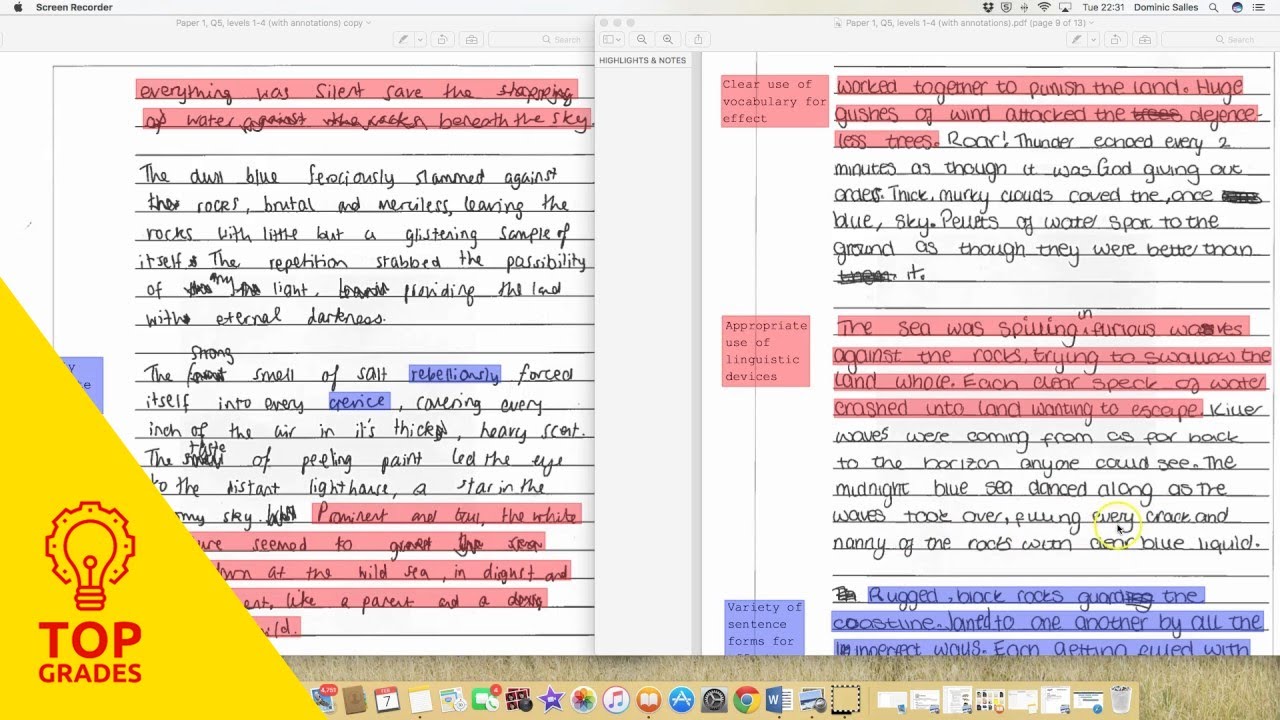 Screen Recorder
Tue 22:31 Dominic Salles
Paper 1, Q5, levels 1-4 (with annotations) copy
Search
everything was silent save the
water beneath the sky.
The dull blue ferociously slammed against
rocks, brutal and merciless, leaving the
rocks with little but a glistening sample of
itself. The repetition stabbed the possibility
of any light, providing the land
with eternal darkness.
strong
The smell of salt rebelliously forced
itself into every crevice, covering every
inch of the air in it's thick, heavy scent.
taste
The of peeling paint led the eye
to the distant lighthouse, a star in the
sky. Prominent and the white
seemed to
at the wild sea, in and
like a parent and a
TOP
GRADES
Paper 1, Q5, levels 1-4 (with annotations).pdf (page 9 of 13)
Search
HIGHLIGHTS & NOTES
Clear use of
vocabulary for
effect
worked together to punish the land. Huge
gushes of wind attacked the defence-
less trees. Roar! Thunder echoed every 2
minutes as though it was God giving out
orders. Thick, murky clouds coved the, once
blue, sky. Pellets of water spat to the
ground as though they were better than
it.
Appropriate
use of
linguistic
devices
in
The sea was spilling furious waves
against the rocks, trying to swallow the
land whole. Each clear speck of water
crashed into land wanting to escape. Killer
waves were coming from as far back
to the horizon anyone could see. The
midnight blue sea danced along as the
waves took over, filling every crack and
nanny of the rocks with clear blue liquid.
Variety of
sentence
forms for
Rugged, black rocks guard the
coastline. Joned to one another by all the
inperfect ways. Each getting filled with
4,751
FEB
7
4